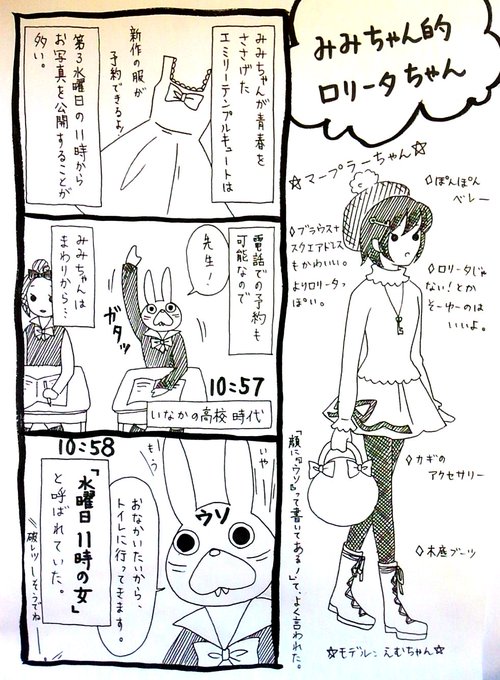 みみちゃん的
ロリータちゃん
みみちゃんが青春を
ささげた
エミリーテンプルキュートは
新作の服が
予約できるよ!
第3水曜日の11時から
お写真を公開することが
多い。
電話での予約も
可能なので
先生!
ガタッ
みみちゃんは
まわりから…
10:57
いなかの高校時代
10:58
いや
もう
ウソ
おなかいたいから、
トイレに行ってきます。
「水曜日11時の女」
と呼ばれていた。
破レツしそうでね
「顔に『ウソ』って書いてあるよ!」って、よく言われた。
☆マープラーちゃん☆
◇ぽんぽん
ベレー
◇ブラウス+
スクエアドレス
もかわいい。
よりロリータっ
ぽい。
◇ロリータじゃ
ない!とか
そーゆーのは
いいよ。
◇カギの
アクセサリー
◇木底ブーツ
☆モデル:えむちゃん☆